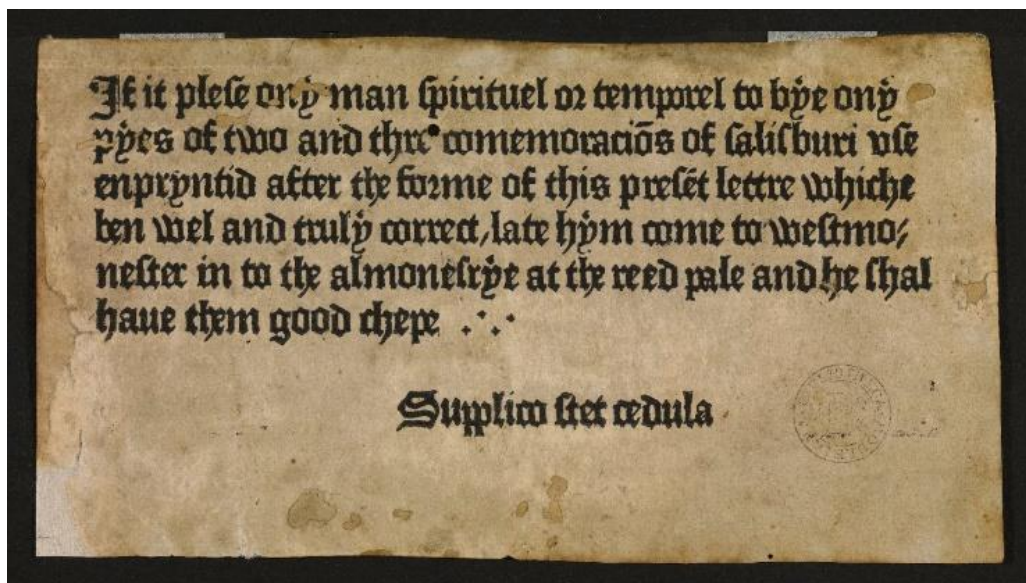 If it plese ony man spirituel or temporel to bye ony
pyes of two and thre comemoraciōs of salisburi vse
enpryntid after the forme of this presēt lettre whiche
ben wel and truly correct, late hym come to westmo⸗
nester in to the almonesrye at the reed pale and he shal
haue them good chepe .∙.∙
Supplico stet cedula